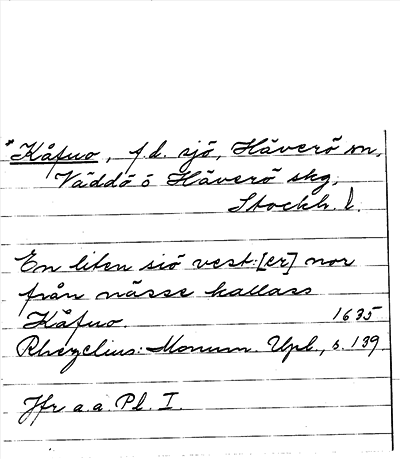 *Kåfuo, f.d. sjö, Häverö sn,
Väddö o Häverö skg,
Stockh. l.
En liten siö vest:[er] nor
från nässe kallass
Kåfuo. 1635
Rhezelius: Monum. Upl., s. 139.
Jfr a.a. Pl. I.